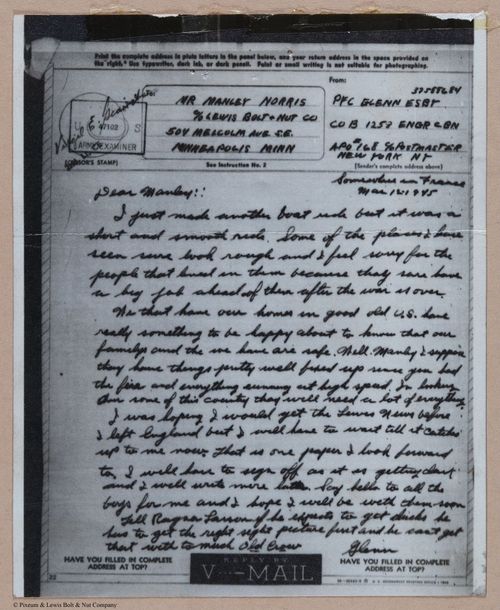 Print the complete address in plain letters in the panel below, and your return address in the space provided
on the right. Use typewriter, dark ink, or dark pencil. Faint or small writing is not suitable for photographing.
From:
32588684
MR MANLEY NORRIS
% LEWIS BOLT & NUT CO
504 MELCOLM AVE S.E.
MINNEAPOLIS MINN
PFC GLENN ESBY
CO B 1253 ENGR C BN
APO # 168 % POSTMASTER
NEW YORK NY
(Sender's complete address above)
U S
47102
ARMY EXAMINER
(CENSOR'S STAMP)
See Instruction No. 2
Somewhere in France
Mar. 12. 1945
Dear Manley!!
I just made another boat ride but it was a
short and smooth ride. Some of the places I have
seen sure look rough and I feel sorry for the
people that lived in them because they sure have
a big job ahead of them after the war is over.
We that have our homes in good old U.S. have
really something to be happy about to know that our
familys and the we have are safe. Well Manley I suppose
they have things pretty well fixed up since you had
the fire and everything running at high speed. In looking
over some of this country they will need a lot of everything.
I was hoping I would get the Lewis News before
I left England but I will have to wait till it catches
up to me now. That is one paper I look forward
to. I will have to sign off as it is getting dark
and I will write more later. Say hello to all the
boys for me and I hope I will be with them soon
Tell Ragnar Larson if he expects to get ducks he
has to get the right sight picture first and he can't get
that with to much Old Crow
Glenn
HAVE YOU FILLED IN COMPLETE
ADDRESS AT TOP?
REPLY BY
V···-MAIL
HAVE YOU FILLED IN COMPLETE
ADDRESS AT TOP?
© Pixzum & Lewis Bolt & Nut Company